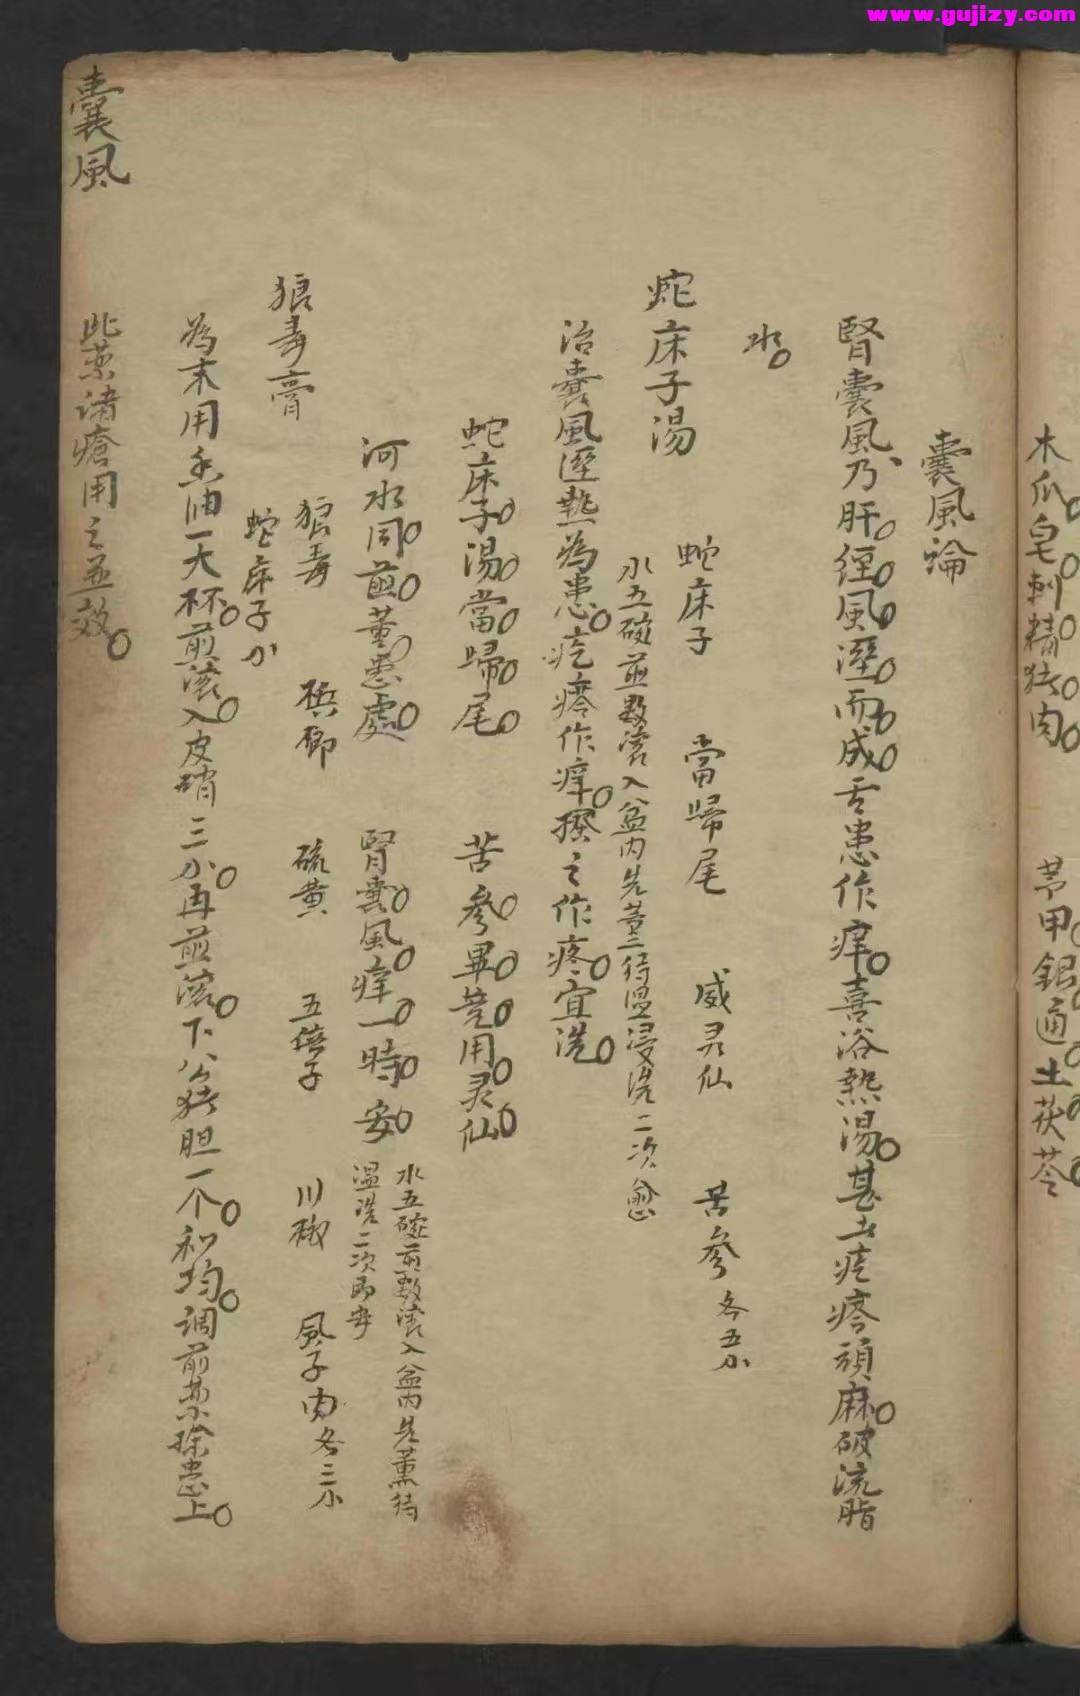 www.gujizy.com
木瓜皂刺精猪肉 芎甲銀通土茯苓
囊風論
腎囊風乃肝經風溼而成舌患作痒喜浴熱湯甚土疙疼頑麻破流脂
水
蛇床子湯 蛇床子 當歸尾 威灵仙 苦參各五小
水五碗煎数滚入盆内先薰待温浸洗二次愈
治囊風溼熱為患疙疼作痒搔之作疼宜洗
蛇床子湯當歸尾 苦參畢竟用灵仙
河水同煎薰患處 腎囊風痒一時安 水五碗煎数滚入盆内先薰待
温洗二次即安
狼毒膏 狼毒 梹郎 硫黄 五倍子 川椒 風子肉各三小
蛇床子小
為末用香油一大杯煎滚入皮硝三小再煎滚下公猪胆一个和均調前藥搽患上
此藥诸瘡用之並效
囊風